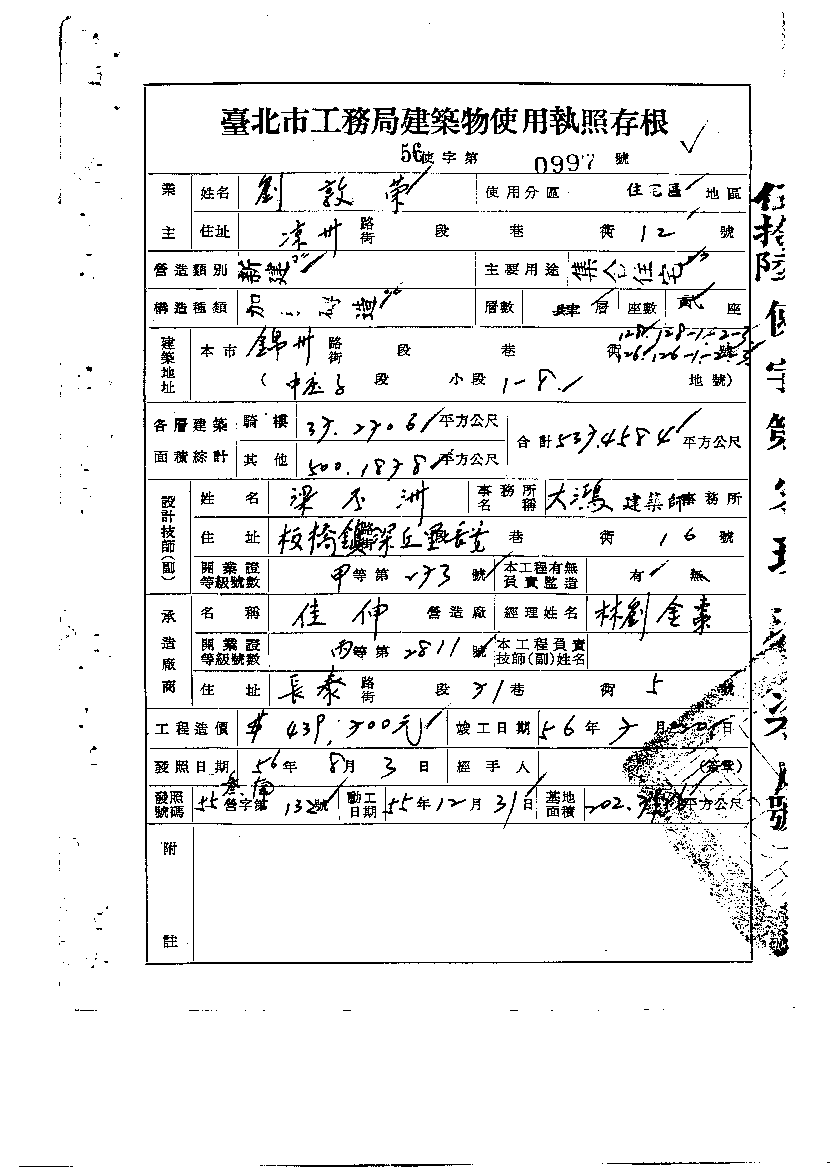 臺北市工務局建築物使用執照存根
56使字第 0997 號
業主 姓名 劉敦榮 使用分區 住宅區 地區
住址 涼州 路街 段 巷 衖 12 號
營造類別 新建 主要用途 集合住宅
構造種類 加 磚造 層數 肆層 座數 貳座
建築地址 本市 錦州 路街 段 巷 衖 128.128-1.-2-3. 126.126-1-2-3 號
( 中庄子 段 小段 1-8. 地號)
各層建築面積綜計 騎樓 37.2706 平方公尺 合計 537.4584 平方公尺
其他 500.1878 平方公尺
設計技師(副) 姓名 梁丕洲 事務所名稱 大鴻建築師事務所
住址 板橋鎮深丘 巷 衖 16 號
開業證等級號數 甲等第 273 號 本工程有無負責監造 有 無
承造廠商 名稱 佳伸 營造廠 經理姓名 林劉金棗
開業證等級號數 丙等第 2811 號 本工程負責技師(副)姓名
住址 長泰 路街 段 31 巷 衖 5 號
工程造價 $ 439,700元 竣工日期 56年 7 月 日
發照日期 56年 8月 3 日 經手人 (簽章)
發照號碼 55 營字第 132 號 動工日期 55年12月31日 基地面積 202. 平方公尺
附註
伍拾陸使字第